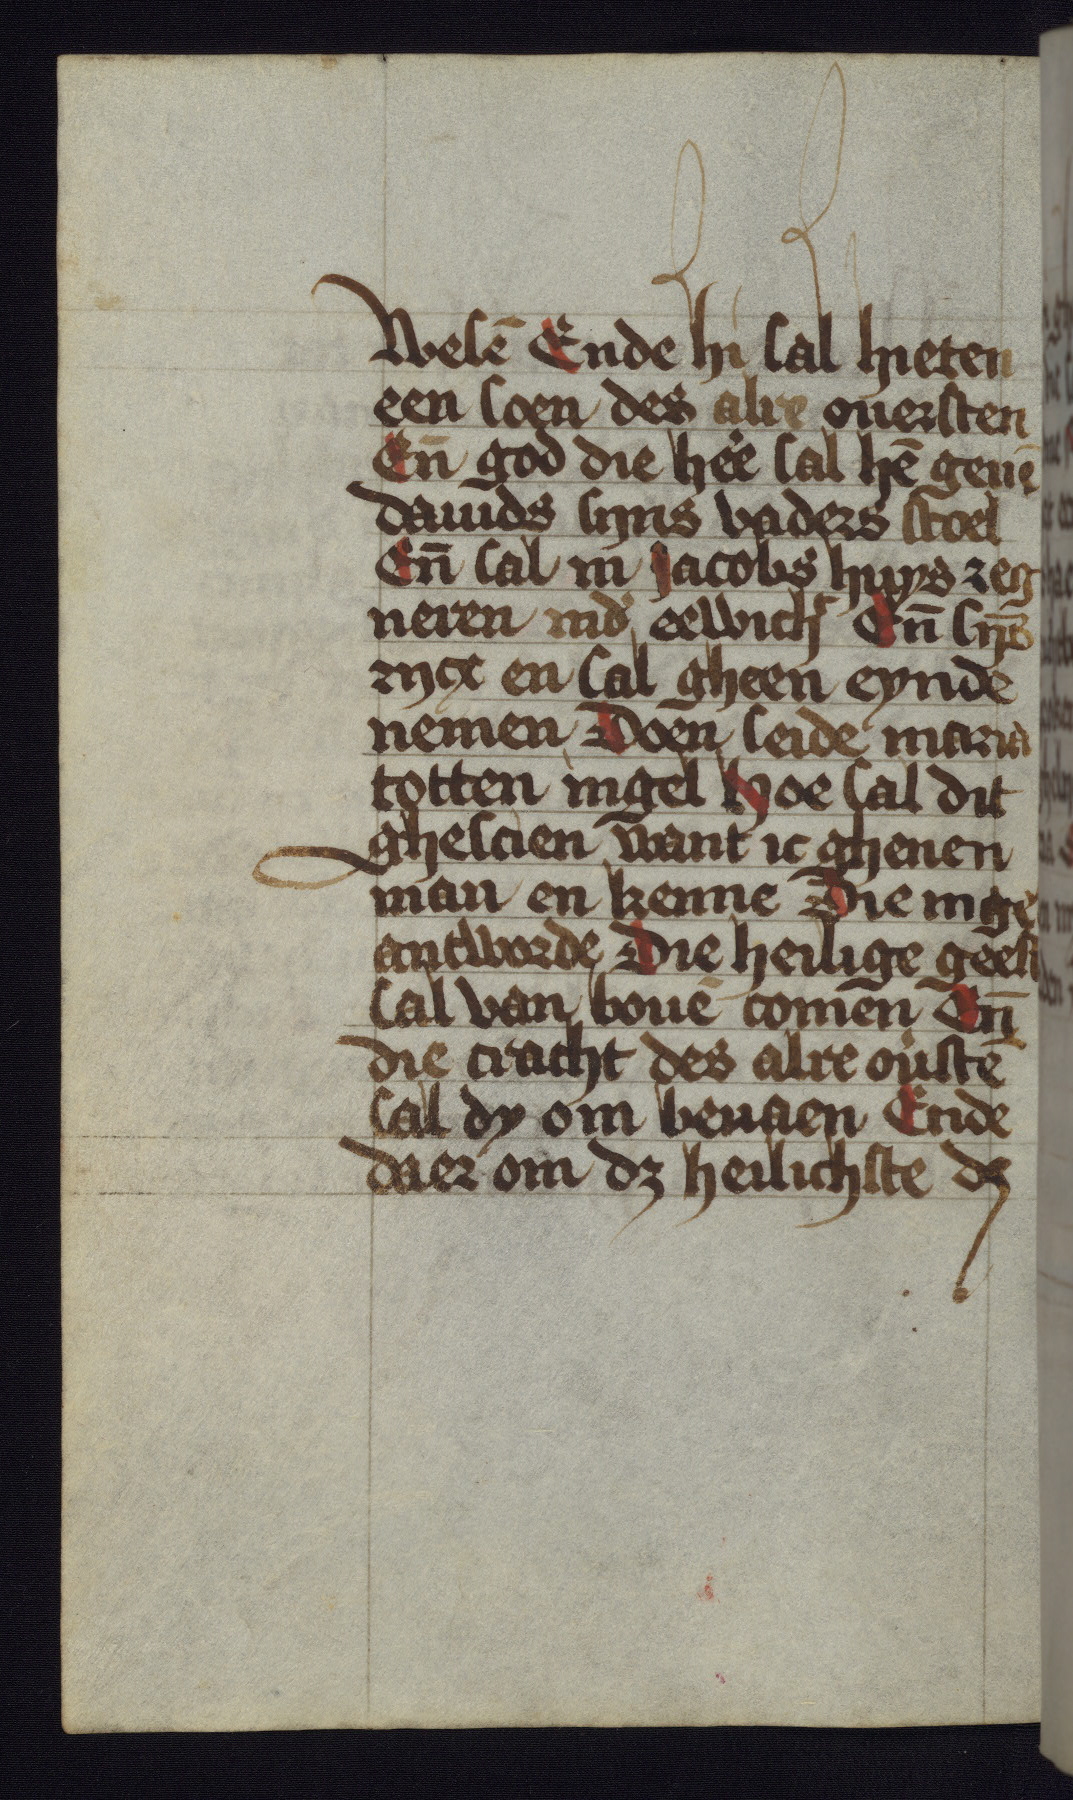 Wesē Ende hi sal hieten
een soen des alre ouersten
En̄ god die hēe sal hē geuē
dauids sijns vaders stoel
En̄ sal in Jacobs huys reg
neren eewich En̄ sijs̄
ryck en sal gheen eynde
nemen Doen seide maria
totten ingel Hoe sal dit
ghescien want ic ghenen
man en kenne Die inge
antworde Die heilige geest
sal van bouē comen En̄
die cracht des alre oūstē
sal dy om beuaen Ende
daer om dz heilichste dz